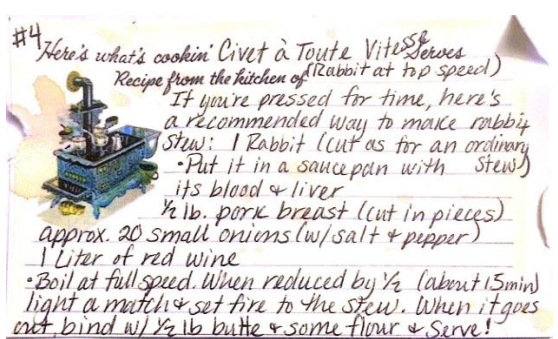 #4
Here's what's cookin' Civet à Toute Vitesse Serves
Recipe from the kitchen of (Rabbit at top speed)
If you're pressed for time, here's
a recommended way to make rabbit
stew: 1 Rabbit (cut as for an ordinary
•Put it in a saucepan with stew)
its blood & liver
½ lb. pork breast (cut in pieces)
approx. 20 small onions (w/salt & pepper)
1 Liter of red wine
•Boil at full speed. When reduced by ½ (about 15min)
light a match & set fire to the stew. When it goes
out, bind w/ ½ lb butte & some flour & serve!